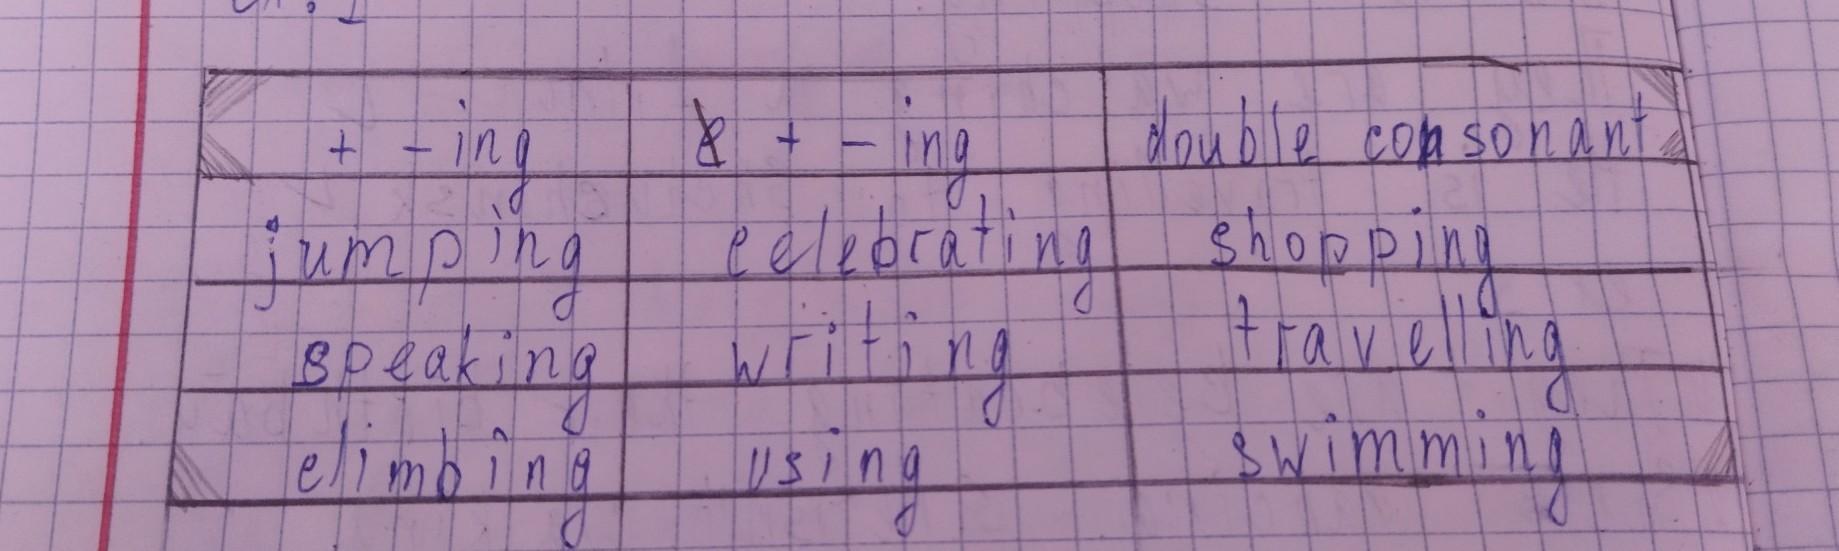 Ex. 1
+ -ing e + -ing double consonant
jumping celebrating shopping
speaking writing travelling
climbing using swimming